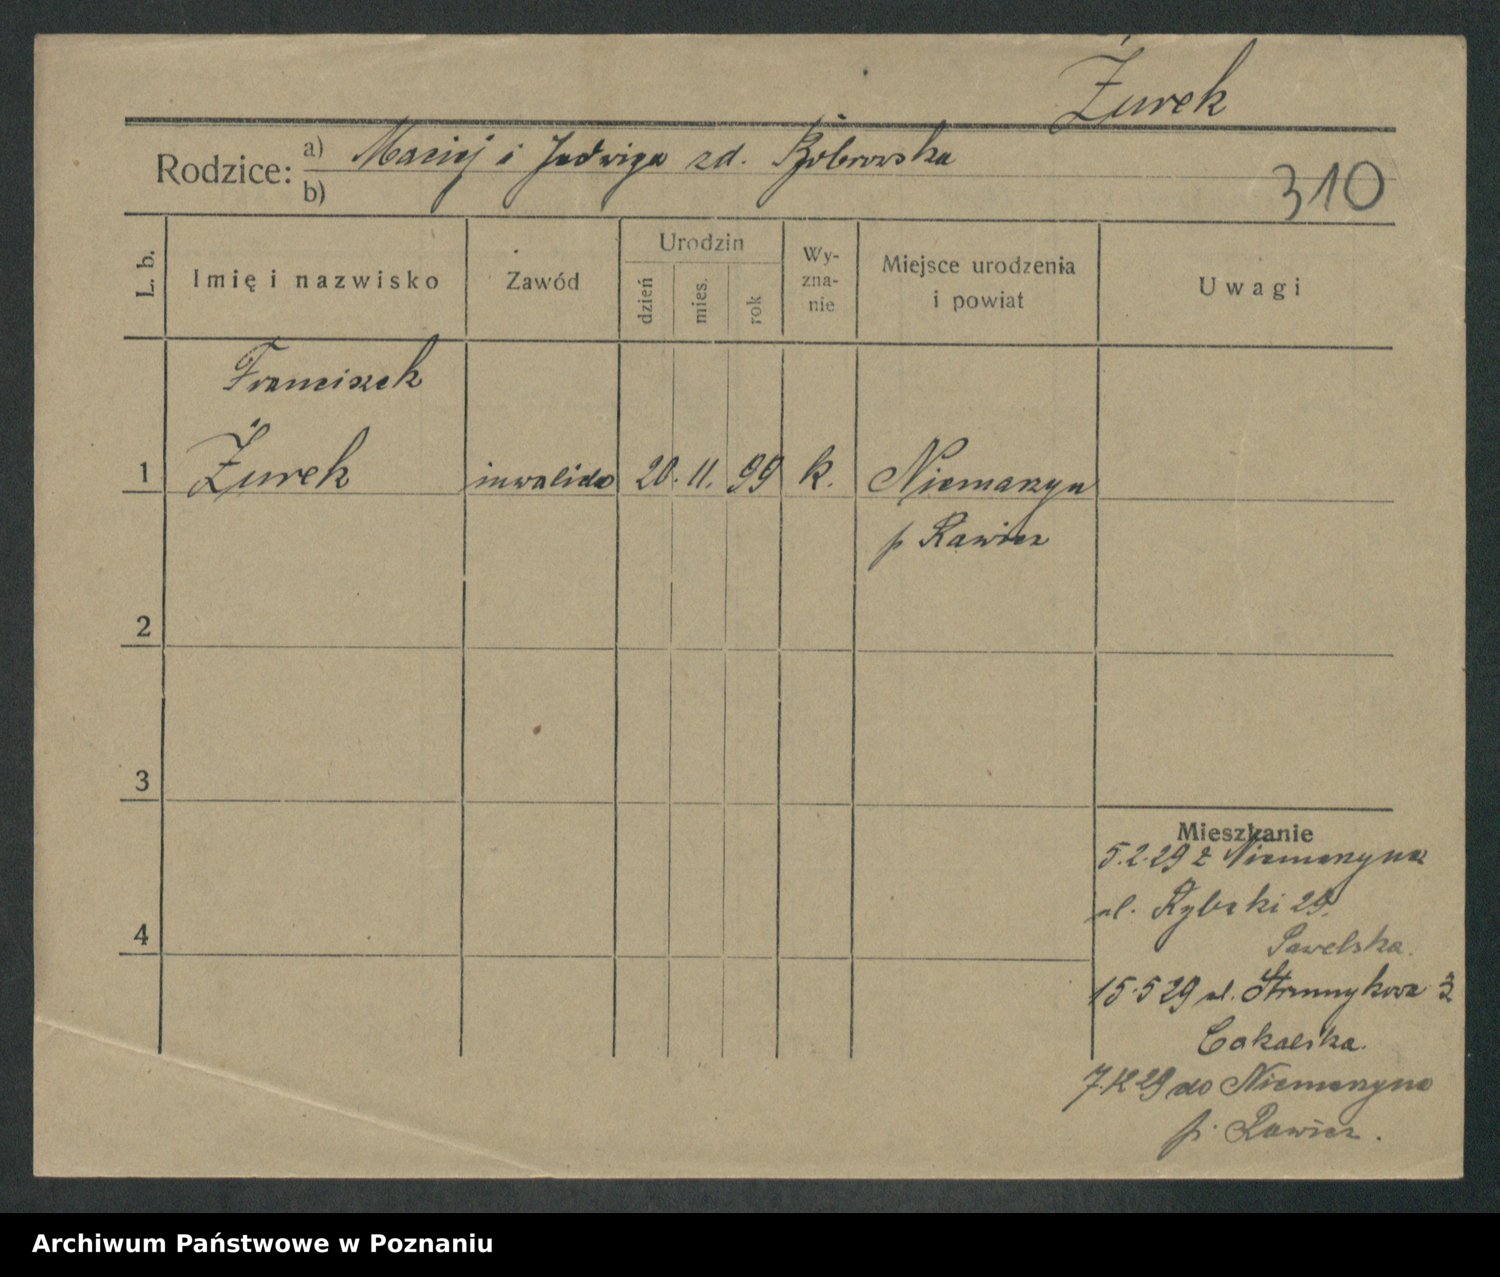 Żurek
Rodzice: a) Maciej i Jadwiga zd. Bóbrowska
b)
310
L. b.
Imię i nazwisko
Zawód
Urodzin
dzień
mies.
rok
Wy-
zna-
nie
Miejsce urodzenia
i powiat
Uwagi
Franciszek
1 Żurek inwalida 20. 11. 99 k. Niemarzyn
p Rawicz
2
3
4
Mieszkanie
5.2.29 z Niemarzyna
ul. Rybaki 29.
Pawelska.
15.5 29 ul. Strumykowa 3
Cakalska.
7.12 29 do Niemarzyna
p. Rawicz.
Archiwum Państwowe w Poznaniu